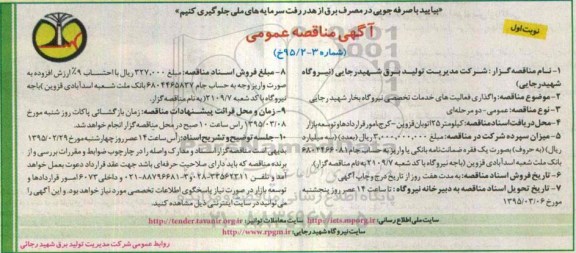 «بیایید با صرفه جویی در مصرف برق از هدر رفت سرمایه های ملی جلوگیری کنیم»
نوبت اول
آگهی مناقصه عمومی
(شماره ۳-۹۵/۲خ)
۱- نام مناقصه گزار: شرکت مدیریت تولید برق شهید رجایی (نیروگاه
شهید رجایی)
۲- موضوع مناقصه: واگذاری فعالیت های خدمات تخصصی نیروگاه بخار شهید رجایی
۳- نوع مناقصه: عمومی- دو مرحله ای
۴- محل دریافت اسناد مناقصه: کیلومتر ۲۵ اتوبان قزوین-کرج امور قراردادها و توسعه بازار
۵- میزان سپرده شرکت در مناقصه: ۳،۰۰۰،۰۰۰،۰۰۰ ریال (به عدد) (سه میلیارد
ریال) (به حروف) بصورت یک فقره ضمانتنامه بانکی یا واریز وجه به حساب
بانک ملت شعبه اسدآبادی قزوین (باجه نیروگاه با کد شعبه ۲۱۰۹/۷ به نام مناقصه گزار).
۶- تاریخ فروش اسناد مناقصه: به مدت هفت روز از تاریخ درج و چاپ آگهی
۷- تاریخ تحویل اسناد مناقصه به دبیر خانه نیروگاه: تا ساعت ۱۴ عصر روز پنجشنبه
مورخ ۱۳۹۵/۰۳/۰۶
۸- مبلغ فروش اسناد مناقصه: مبلغ ۳۲۷،۰۰۰ ریال با احتساب ۹٪ ارزش افزوده به
صورت واریز وجه به حساب جام ۶۸۰۴۴۶۵۸۳۷ بانک ملت شعبه اسدآبادی قزوین (باجه
نیروگاه با کد شعبه ۲۱۰۹/۷) به نام مناقصه گزار.
۹- زمان و محل قرائت پیشنهادات مناقصه: زمان بازگشائی پاکات روز شنبه مورخ
۱۳۹۵/۰۳/۰۸ رأس ساعت ۱۰ صبح در محل مناقصه گزار انجام خواهد شد.
۱۰- جلسه توضیح و تشریح اسناد: رأس ساعت ۱۴ عصر روز چهارشنبه مورخ ۱۳۹۵/۰۲/۲۹
در محل مناقصه گزار. اسناد مناقصه و مدارک واصله را در چارچوب ضوابط و مقررات بررسی و از
برنده مناقصه که باید دارای صلاحیت حرفه ای باشد جهت عقد قرارداد دعوت بعمل خواهد
آمد و تلفن ۳۴۵۶۲۳۱۱-۰۲۸ و ۸۸۷۹۶۶۸۳-۰۲۱ و داخلی ۶۰۷۳ امور قراردادها و
توسعه بازار در صورت نیاز پاسخگوی اطلاعات تخصصی مورد نیاز خواهد بود. و این آگهی را
می توانید در سایت اینترنتی ذیل مشاهده کنید.
سایت ملی اطلاع رسانی: http://iets.mporg.ir سایت معاملات توانیر: http://tender.tavanir.org.ir
سایت نیروگاه شهید رجایی: http://www.rpgm.ir
روابط عمومی شرکت مدیریت تولید برق شهید رجائی